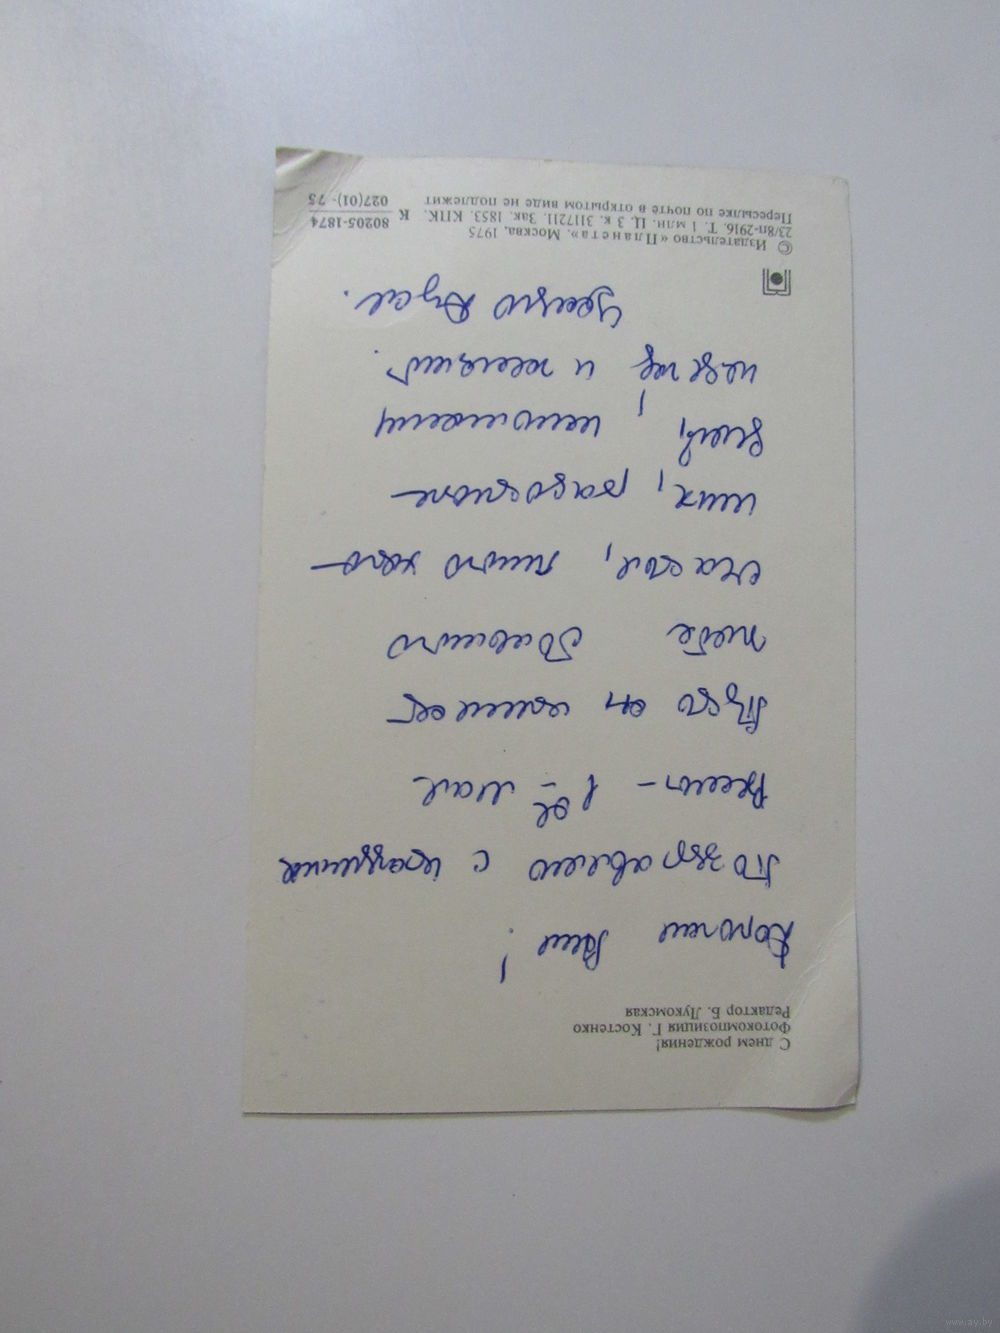 С днем рождения!
Фотокомпозиция Г. Костенко
Редактор Б. Лукомская
Дорогая !
Поздравляю с праздником
Весны – 1 ое мая
Пусть он принесет
тебе большого
счастья, много хоро-
ших, радостных
дней,
надежд и желаний.
© Издательство «Планета». Москва, 1975
23/8п-2916. Т. 1 млн. Ц. 3 к. 3117211. Зак. 1853. КПК.
Пересылке по почте в открытом виде не подлежит
К 80205-1874
027(01)-75
www.ay.by